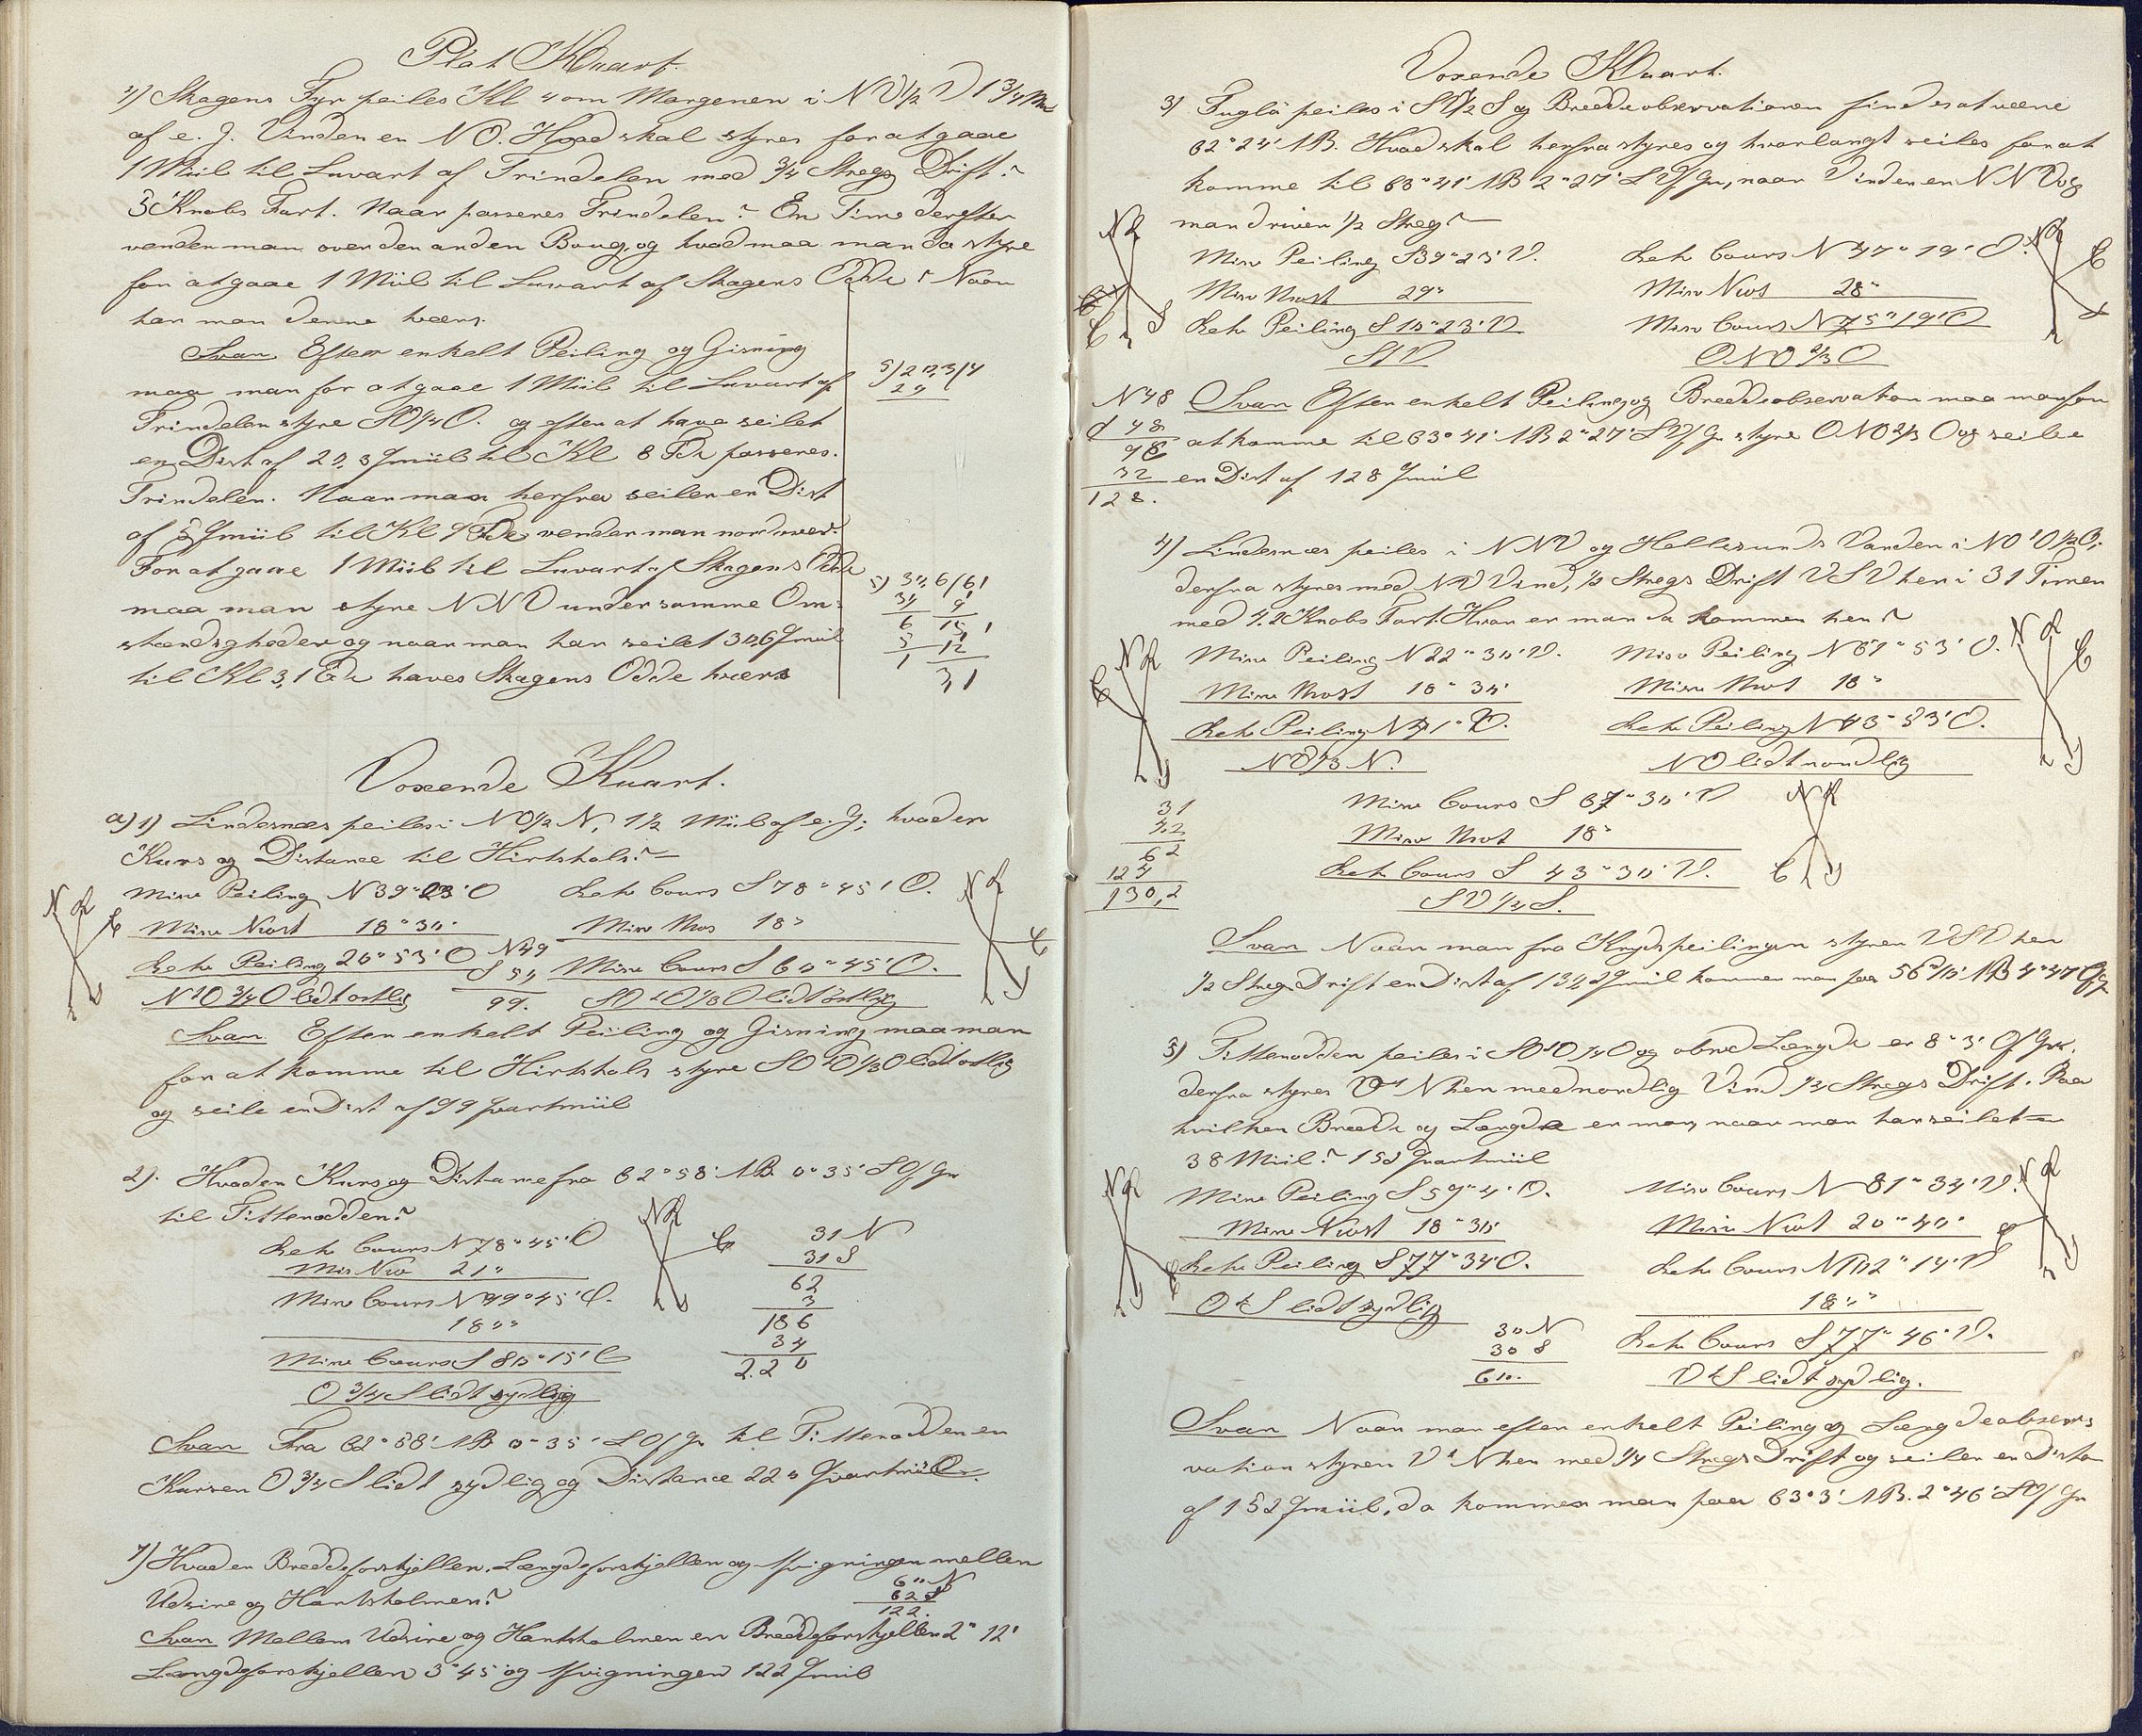 Plat Kaart.
4) Skagens Fyr peiles Kl 4 om Morgenen i NV½V 1¾ Mil
af e. G. Vinden er NO. Hvad skal styres for at gaae
1 Miil til Luvart af Trindelen med ¾ Stregs Drift?
5 Knobs Fart. Naar passeres Trindelen? En Time derefter
vender man over den anden Boug, og hvad maa man da styre
for at gaae 1 Miil til Luvart af Skagens Odde? Naar
har man denne tværs.
Svar Efter enkelt Peiling og Gisning
maa man for at gaae 1 Miil til Luvart af
Trindelen styre SO¼O. og efter at have seilet
en Dist af 20,3 Qmiil til Kl 8 Fde passeres
Trindelen. Naar man herfra seiler en Dist
af 5 Qmiil til Kl 9 Fde, vender man nordover.
For at gaae 1 Miil til Luvart af Skagens Odde
maa man styre NNV under samme Om-
stændigheder og naar man har seilet 30,6 Qmiil
til Kl 3,1 Ede haves Skagens Odde tværs
5) 20,3/4
20
5) 30,6/6,1
30 9
6 15,1
5 12
1 3,1
Voxende Kaart.
a) 1) Lindesnæs peiles i NO½N, 1½ Miil af e. G; hvad er
Kurs og Distance til Hirtshals?
Misv Peiling N 39° 23' O Retv Cours S 78° 45' O.
Misv Nvest 18° 30' Misv Nves 18°
Retv Peiling 20° 53' O Misv Cours S 60° 45' O.
N 49
S 50
99.
NtO¾O lidt ostlig SOtO⅓O lidt ostlig
Svar. Efter enkelt Peiling og Gisning maa man
for at komme til Hirtshals styre SOtO⅓O lidt ostlig
og seile en Dist af 99 Qvartmiil
2). Hvad er Kurs og Distance fra 62° 58' NB. 0° 35' LO f Gr
til Tittenodden?
Retv Cours N 78° 45' O
Mis Nv 21°
Misv Cours N 99° 45' O.
18 ° °
Misv Cours S 80° 15' O
O¾S lidt sydlig
31 N
31 S
62
3
186
34
220
Svar Fra 62° 58' NB 0° 35' LO f Gr til Tittenodden er
Kursen O¾S lidt sydlig og Distance 220 Qvartmiil.
7) Hvad er Breddeforskjellen, Længdeforskjellen og Afvigningen mellem
Udsire og Hantsholmen?
60 N
62 S
122.
Svar Mellem Udsire og Hantsholmen er Breddeforskjellen 2° 12'
Længdeforskjellen 3° 45' og Afvigningen 122 Qmiil
Voxende Kaart.
3) Fuglö peiles i SV½S og Breddeobservationen findes at være
62° 24' NB. Hvad skal herfra styres og hvorlangt seiles for at
komme til 63° 41' NB 2° 27' LV f Gr, naar Vinden er NNV og
man driver ½ Streg?
Misv Peiling S 39° 23' V. Retv Cours N 47° 19' O.
Misv Nvest 29° Misv Nves 28°
Retv Peiling S 10° 23' V Misv Cours N 75° 19' O
StV ONO⅔O
N 48
S 48
96
32
128.
Svar Efter enkelt Peiling og Breddeobservation maa man for
at komme til 63° 41' NB 2° 27' LV f Gr styre ONO⅔O og seile
en Dist af 128 Qmiil
4) Lindesnæs peiles i NNV og Hellesunds Varden i NOtO½O;
derfra styres med NV Vind, ½ Stregs Drift VSV hen i 31 Timer
med 4,2 Knobs Fart. Hvor er man da kommen hen?
Misv Peiling N 22° 30' V. Misv Peiling N 61° 53' O.
Misv Nvest 18° 30' Misv Nvest 18°
Retv Peiling N 41° V. Retv Peiling N 43° 53' O.
NV⅓N. NO lidt nordlig
31
4,2
62
124
130,2
Misv Cours S 67° 30' V
Misv Nvest 18°
Retv Cours S 43° 30' V.
SV¼S.
Svar Naar man fra Krydspeilingen styrer VSV hen
½ Stregs Drift en Dist af 130,2 Qmiil kommer man paa 56° 10' NB 4° 47' O f Gr
5) Tittenodden peiles i SOtO¼O og obsvd Længde er 8° 3' O f Grw.
derfra styres VtN hen med nordlig Vind ¼ Stregs Drift. Paa
hvilken Bredde og Længde er man, naar man har seilet
38 Miil? 152 Qvartmiil
Misv Peiling S 59° 4' O. Misv Cours N 81° 34' V.
Misv Nvest 18° 30' Misv Nvest 20° 40'
Retv Peiling S 77° 34' O. Retv Cours N 102° 14' V
OtS lidt sydlig 18 ° °
Retv Cours S 77° 46' V.
VtS lidt sydlig.
30 N
30 S
60.
Svar Naar man efter enkelt Peiling og Længdeobser-
vation styrer VtN hen med ¼ Stregs Drift og seiler en Distance
af 152 Qmiil, da kommer man paa 63° 3' NB. 2° 46' LO f Gr